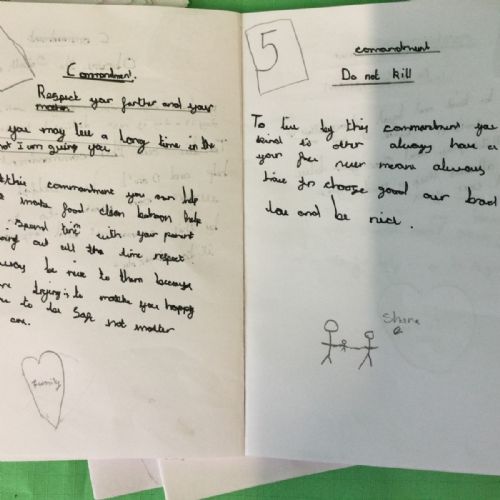 Commandment.
Respect your farther and your
mother
you may live a long time in the
I am giving you.
this commandment you can help
make food clean help
spend time with your parent
out all the time respect
be nice to them because
trying to make you happy
to be safe not matter
are.
family
5
commandment
Do not kill
To live by this commandment you
kind is other always have a
your never means always
have to choose good our bad
love and be nice.
Share